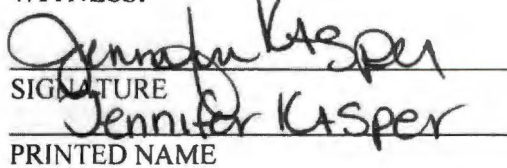 WITNESS:
Jennifer Kasper
SIGNATURE
Jennifer KASper
PRINTED NAME